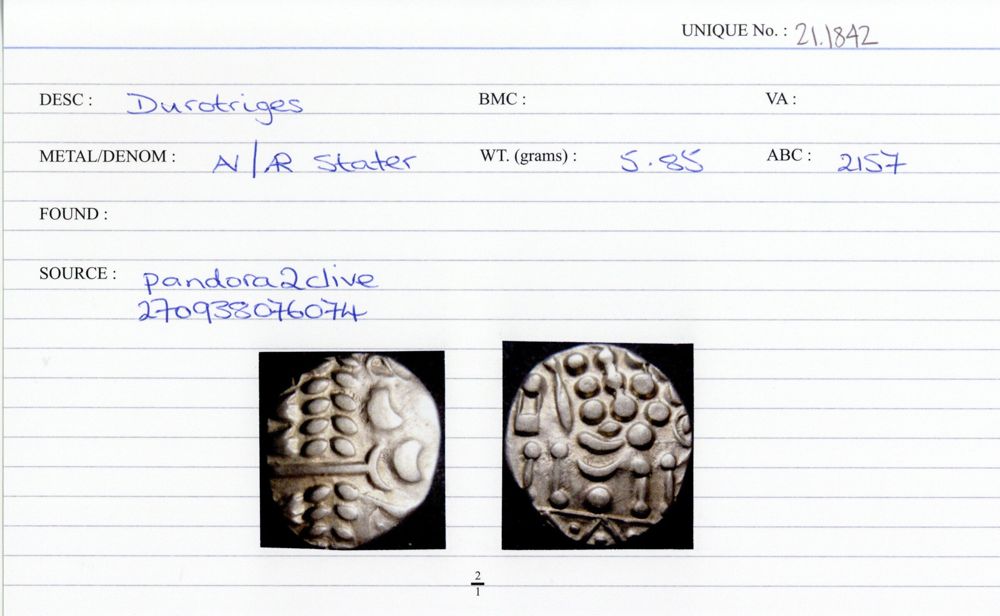 UNIQUE No. : 21.1842
DESC : Durotriges BMC : VA :
METAL/DENOM : N/AR Stater WT. (grams) : 5.85 ABC : 2157
FOUND :
SOURCE : pandora2clive
270938076074
2
1